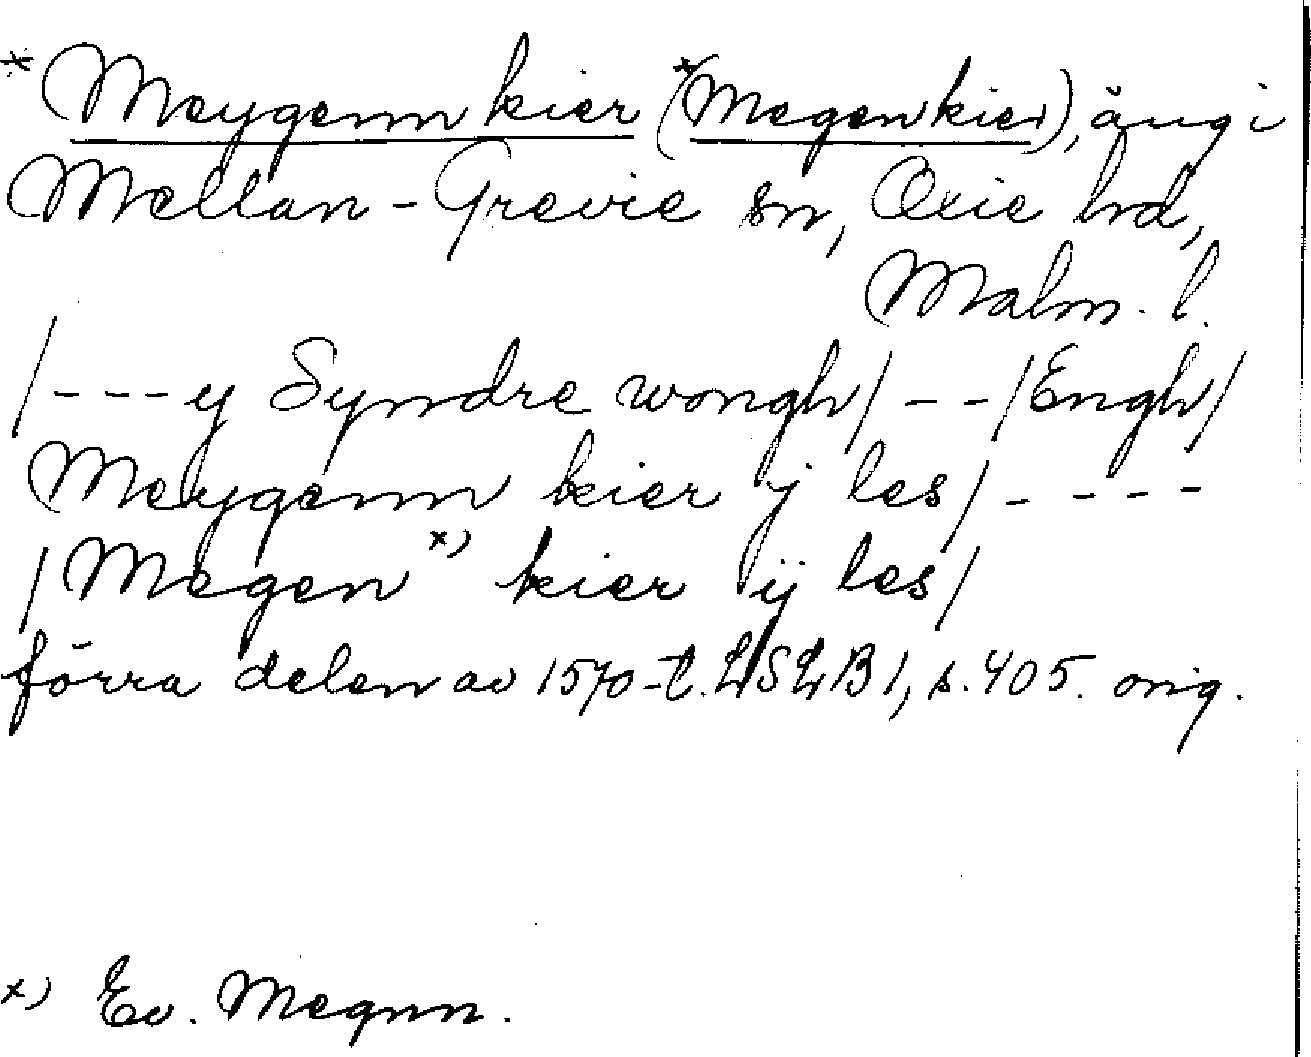 * Meygenn kier (*Megen kier), äng i
Mellan-Grevie sn, Oxie hd,
Malm. l.
/---y Syndre wongh/--/Engh/
Meygenn kier ij les/----
/Megen x) kier ij les/
förra delen av 1570-t. LSLB1, s. 405. orig.
x) Ev. Megnn.